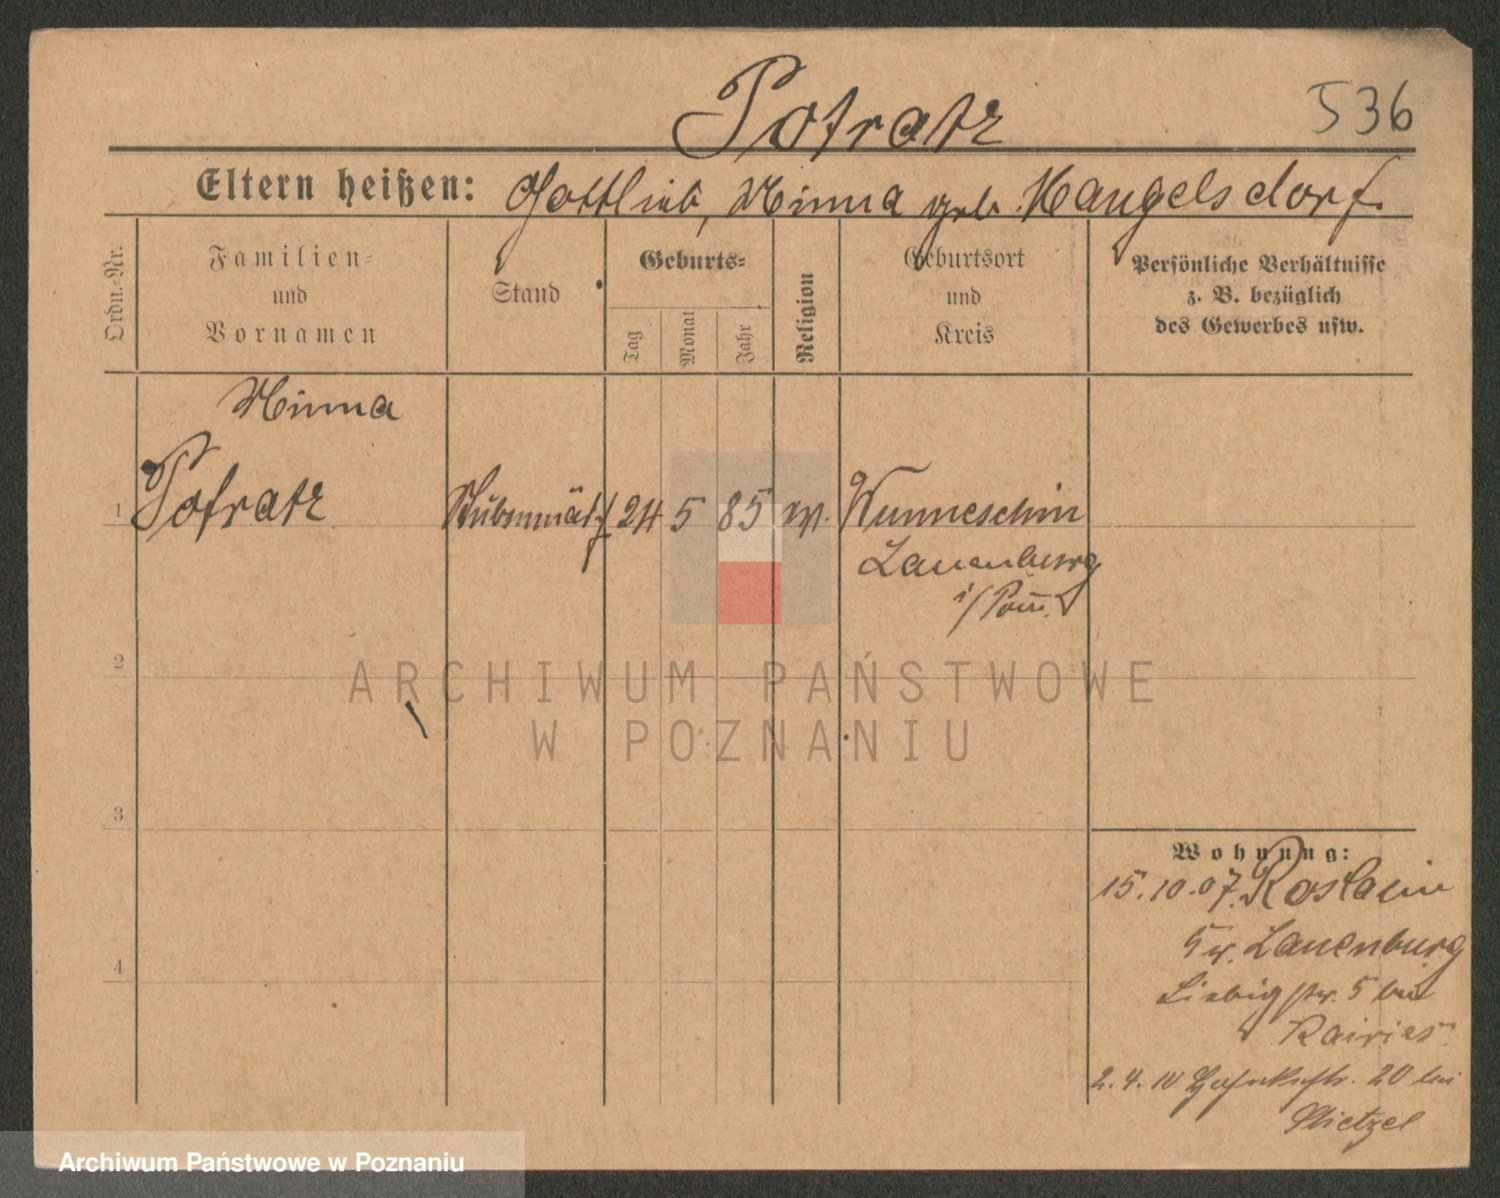 Pofratz
536
Eltern heißen: Gottlieb, Minna geb. Mangelsdorf.
Ordn.-Nr.
Familien-
und
Vornamen
Stand
Geburts-
Tag
Monat
Jahr
Religion
Geburtsort
und
Kreis
Persönliche Verhältnisse
z. B. bezüglich
des Gewerbes usw.
Minna
1 Pofratz Stubenmädch 24 5 85 ev. Wunneschin
Lauenburg
i/Pom.
2
ARCHIWUM PAŃSTWOWE
W POZNANIU
3
Wohnung:
15.10.07. Roslasin
Kr. Lauenburg
4
Liebigstr. 5 bei
2.4.10 20 bei
Archiwum Państwowe w Poznaniu